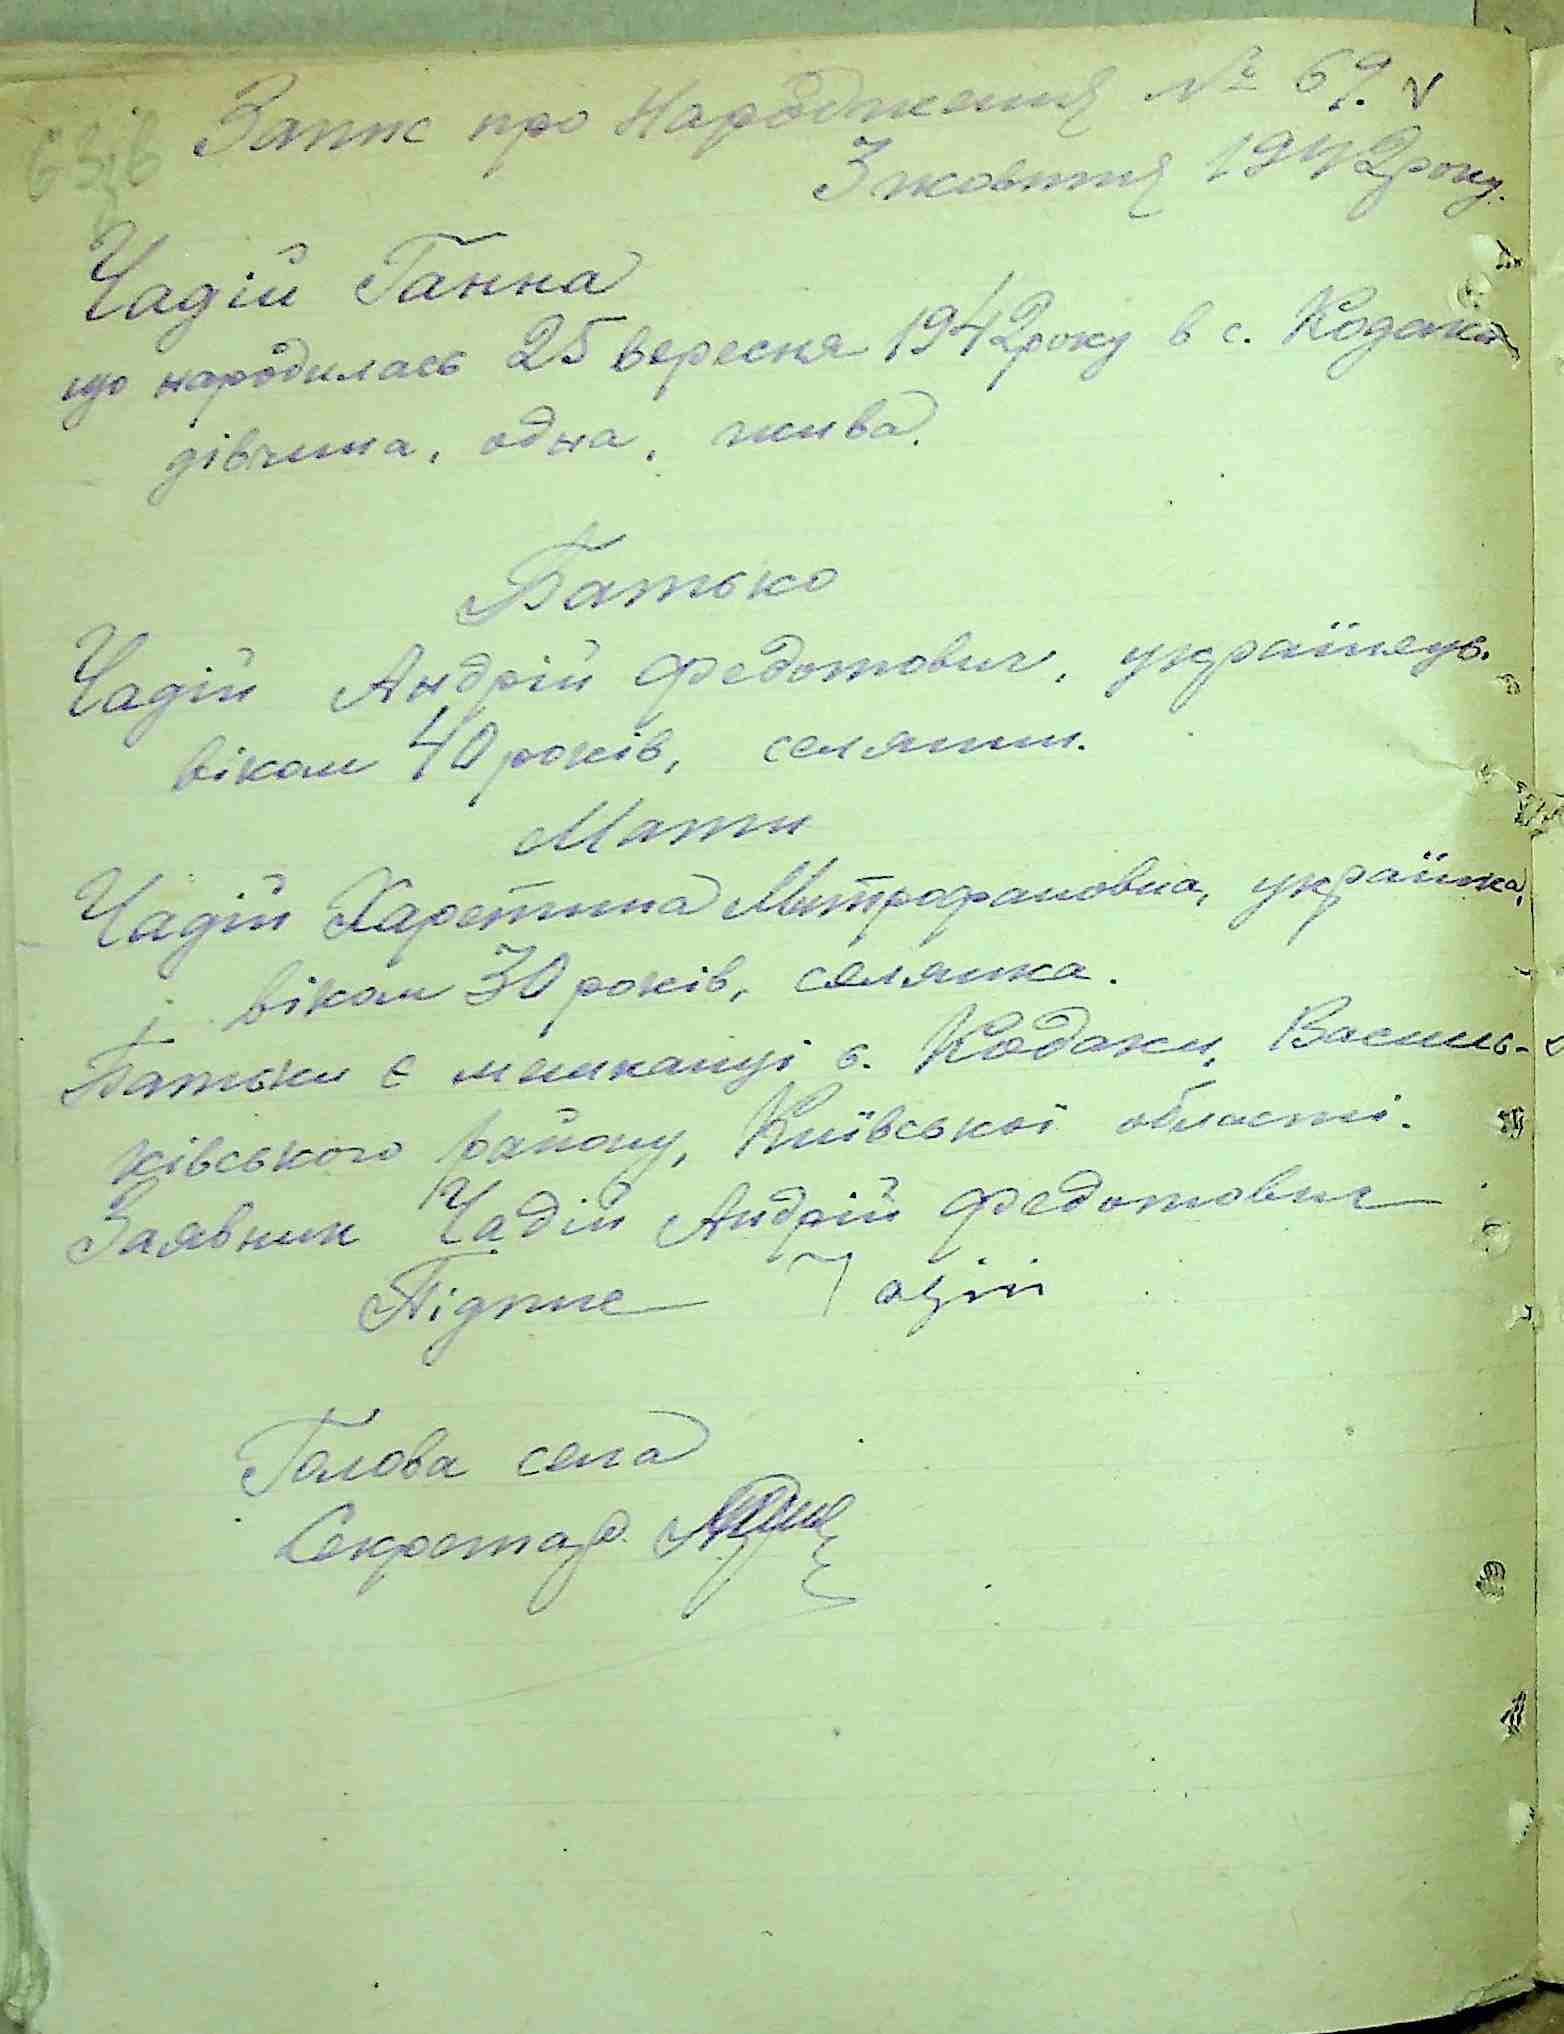 Запис про Народження № 69. v
3 жовтня 1942 року.
Чадій Ганна
що народилась 25 вересня 1942 року в с. Кодаки
дівчина, одна, жива.
Батько
Чадій Андрій Федотович, українець.
віком 40 років, селянин.
Мати
Чадій Харетина Митрофановна, українка,
віком 30 років, селянка.
Батьки є мешканці с. Кодаки, Василь-
ківського району, Київської області.
Заявник Чадій Андрій Федотович
Підпис Чадій
Голова села
Секретар